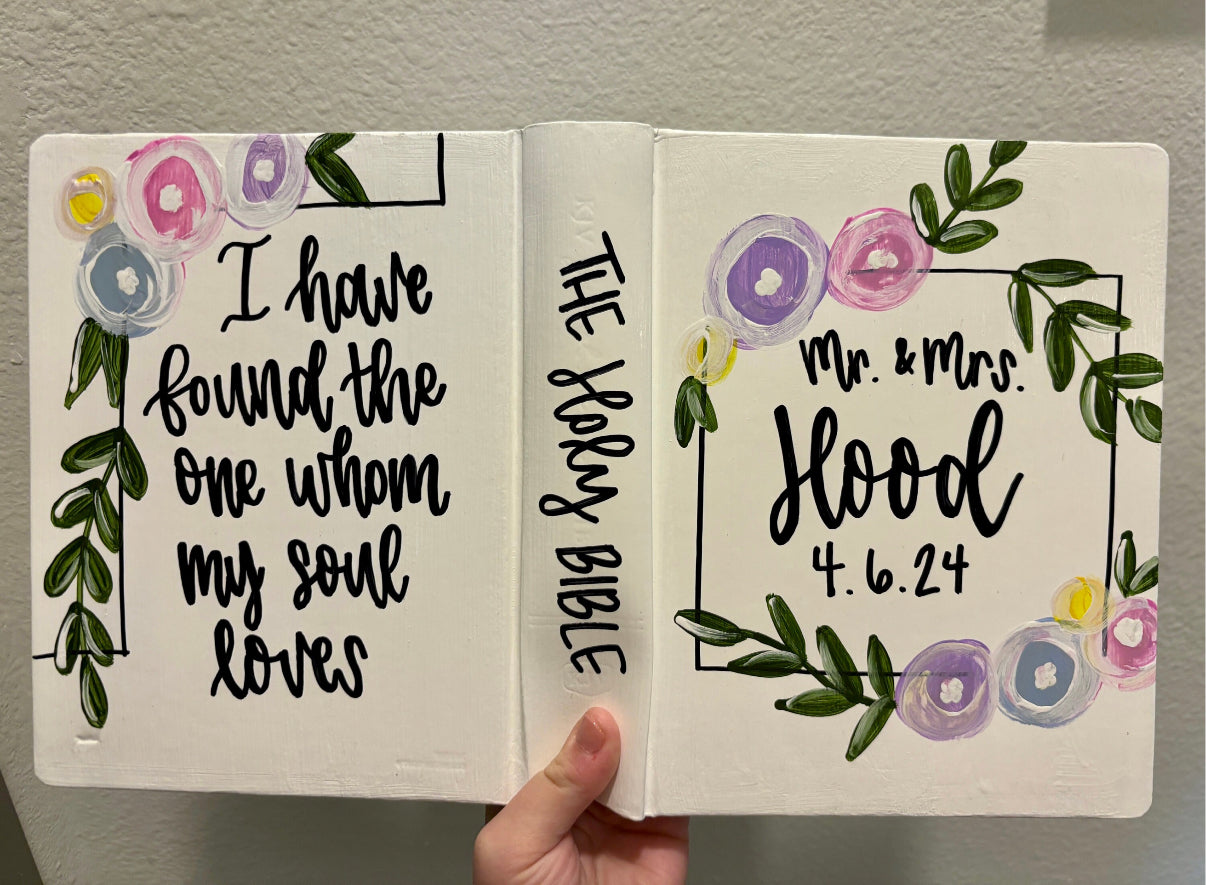 I have
found the
one whom
my soul
loves
THE Holy BIBLE
Mr. & Mrs.
Hood
4.6.24